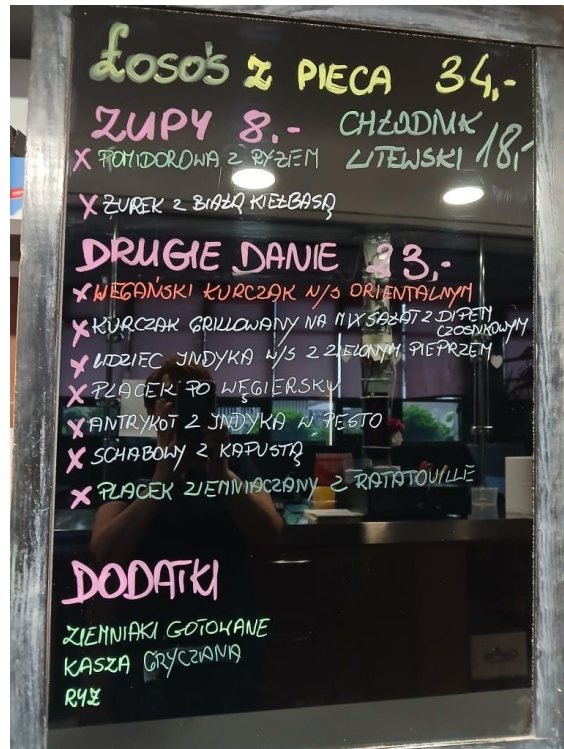 Łosoś z PIECA 34,-
ZUPY 8.-
CHŁODNIK LITEWSKI 18,-
x POMIDOROWA Z RYŻEM
x ŻUREK Z BIAŁĄ KIEŁBASĄ
DRUGIE DANIE 23,-
x WEGAŃSKI KURCZAK W/S ORIENTALNYM
x KURCZAK GRILLOWANY NA MIX SAŁAT Z DIPEM
CZOSNKOWYM
x UDZIEC INDYKA W/S Z ZIELONYM PIEPRZEM
x PLACEK PO WĘGIERSKU
x ANTRYKOT Z INDYKA W PESTO
x SCHABOWY Z KAPUSTĄ
x PLACEK ZIEMNIACZANY Z RATATOUILLE
DODATKI
ZIEMNIAKI GOTOWANE
KASZA GRYCZANA
RYŻ